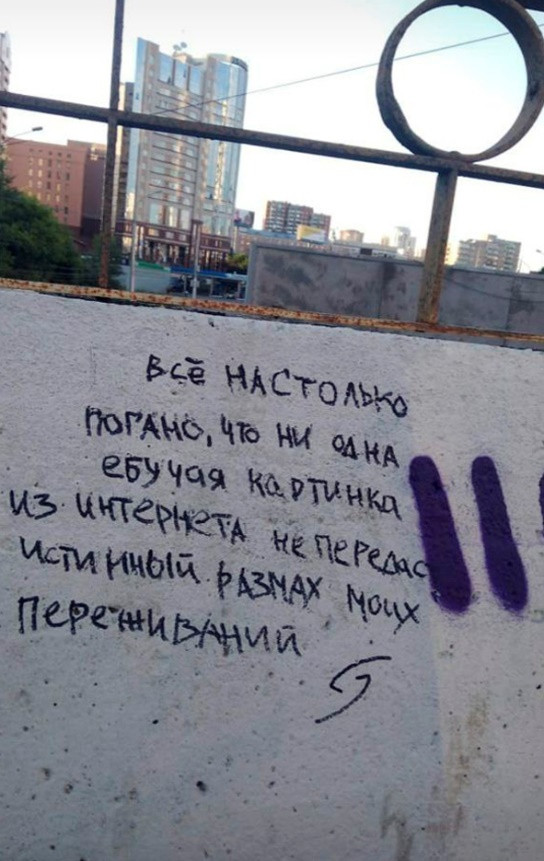 всё настолько
погано, что ни одна
ебучая картинка
из интернета не передас
истинный размах моих
переживаний